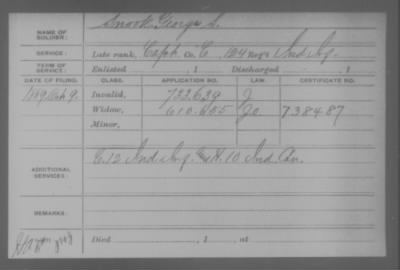 NAME OF SOLDIER: Snook, George S.
SERVICE: Late rank, Capt. Co. E, 124 Reg't Ind. Inf.
TERM OF SERVICE: Enlisted , 1 Discharged , 1
DATE OF FILING. CLASS. APPLICATION NO. LAW. CERTIFICATE NO.
Invalid, 722.639 J
Widow, 610.605 Jo 738487
Minor,
ADDITIONAL SERVICES: C. 12 Ind. Inf. & H. 10 Ind. Cav.
REMARKS:
Died , 1 , at